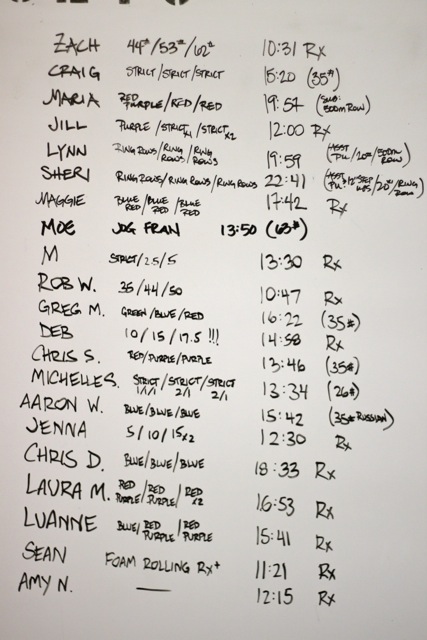 ZACH 44# / 53# / 62# 10:31 Rx
CRAIG STRICT / STRICT / STRICT 15:20 (35#)
MARIA RED PURPLE / RED / RED 19:57 (SUB: 500M ROW)
JILL PURPLE / STRICT x1 / STRICT x2 12:00 Rx
LYNN RING ROWS / RING ROWS / RING ROWS 19:59 (ASST PU / 20# / 500M ROW)
SHERI RING ROWS / RING ROWS / RING ROWS 22:41 (ASST PU / 12" STEP UPS / 20# / RING ROW)
MAGGIE BLUE RED / BLUE RED / BLUE RED 17:42 Rx
MOE JOG FRAN 13:50 (63#)
M STRICT / 2.5 / 5 13:30 Rx
ROB W. 35 / 44 / 50 10:47 Rx
GREG M. GREEN / BLUE / RED 16:22 (35#)
DEB 10 / 15 / 17.5 !!! 14:58 Rx
CHRIS S. RED / PURPLE / PURPLE 13:46 (35#)
MICHELLE S. STRICT 1/1/1 / STRICT 2/1 / STRICT 2/1 13:34 (26#)
AARON W. BLUE / BLUE / BLUE 15:42 (35# RUSSIAN)
JENNA 5 / 10 / 15 x2 12:30 Rx
CHRIS D. BLUE / BLUE / BLUE 18:33 Rx
LAURA M. RED PURPLE / RED PURPLE / RED x2 16:53 Rx
LUANNE BLUE / RED PURPLE / RED PURPLE 15:41 Rx
SEAN FOAM ROLLING Rx+ 11:21 Rx
AMY N. — 12:15 Rx